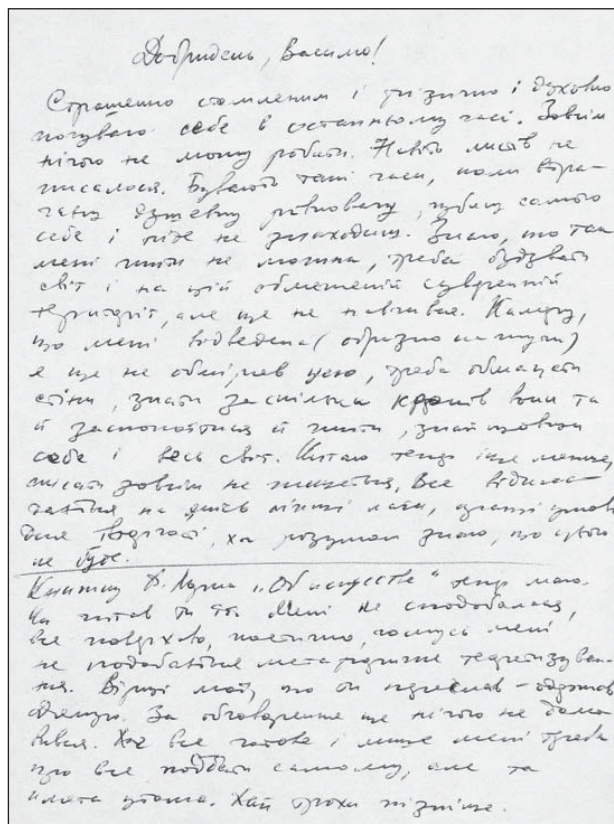 Добридень, Василю!
Страшенно стомленим і фізично і духовно
почуваю себе в останньому часі. Зовсім
нічого не можу робити. Навіть листів не
писалося. Бувають такі часи, коли втра-
чаєш душевну рівновагу, губиш самого
себе і ніде не знаходиш. Знаю, що так
мені жити не можна, треба
світ і на цій обмеженій суверенній
території, але ще не навчився. Камеру,
що мені відведена (образно кажучи)
я ще не обміряв усю, треба обмацати
стіни, знати за скільки кроків вони та
й заспокоїтися й жити, знайшовши
себе і весь світ. Читаю тепер іще менше,
писати зовсім не пишеться. Все відкла-
дається на якісь ліпші часи, ліпші умови
для творчості, хоч розумом знаю, що цього
не буде.
Книжку „Об искусстве" тепер маю.
Чи читав ти її? Мені не сподобалася,
все поверхово, поетично, чомусь мені
не подобається метафоричне теоретизуван-
ня. Вірші мої, що ти надіслав – одержав
Дякую. За обговорення ще нічого не домо-
вився. Хоч все готове і лише мені треба
про все подбати самому, але та
клята утома. Хай трохи пізніше.